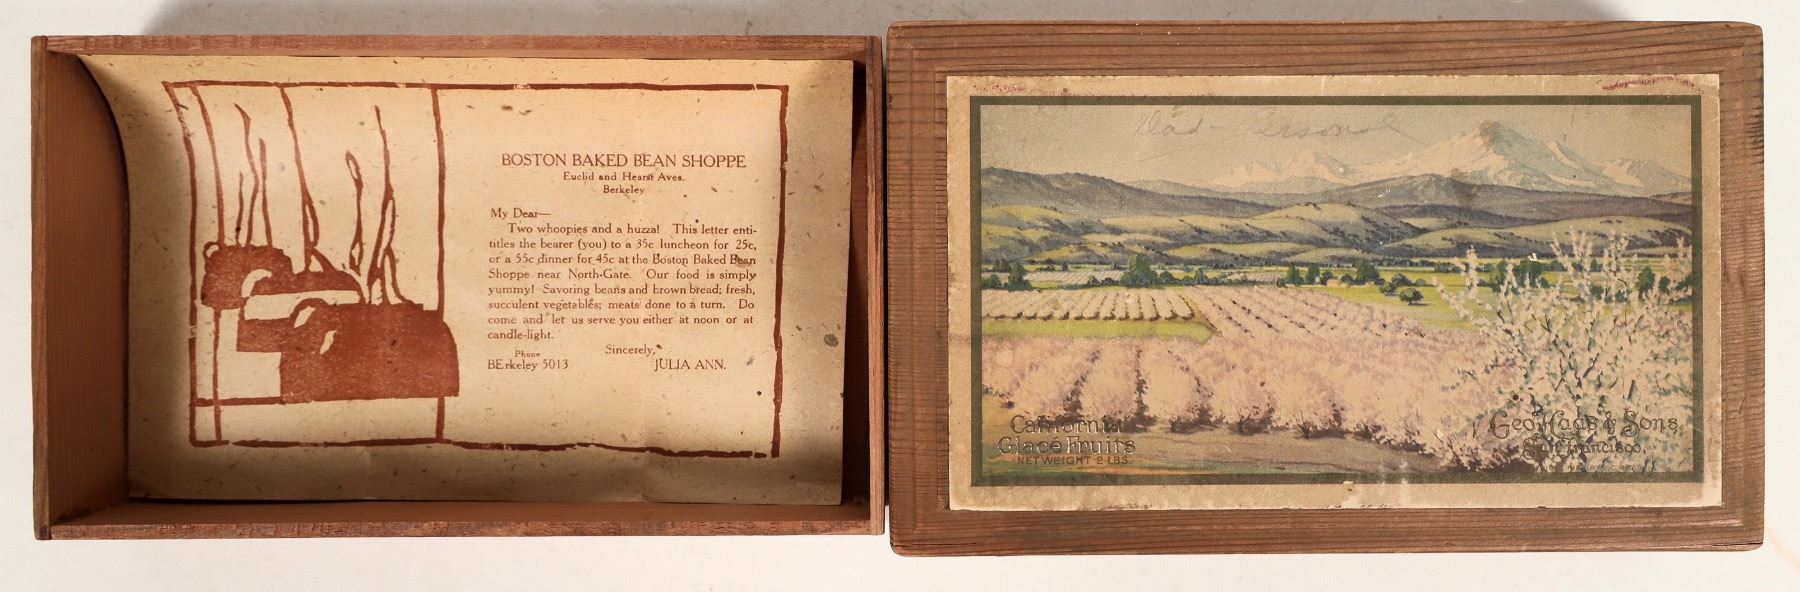 BOSTON BAKED BEAN SHOPPE
Euclid and Hearst Aves.
Berkeley
My Dear—
Two whoopies and a huzza! This letter enti-
titles the bearer (you) to a 35c luncheon for 25c,
or a 55c dinner for 45c at the Boston Baked Bean
Shoppe near North-Gate. Our food is simply
yummy! Savoring beans and brown bread; fresh,
succulent vegetables; meats done to a turn. Do
come and let us serve you either at noon or at
candle-light.
Sincerely,
Phone
BErkeley 5013 JULIA ANN.
Dad - Personal
California
Glacé Fruits
NET WEIGHT 2 LBS.
Geo. Haas & Sons
San Francisco.